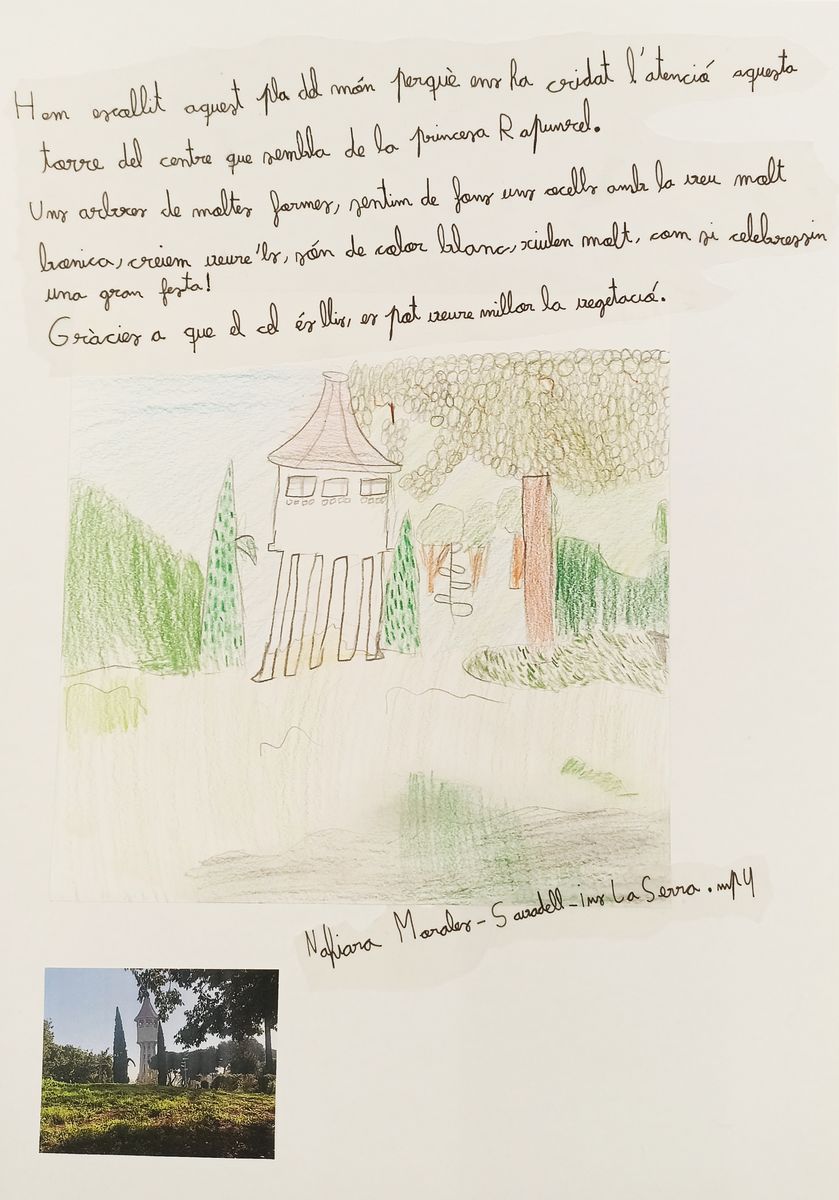 Hem escollit aquest pla del món perquè ens ha cridat l'atenció aquesta
torre del centre que sembla de la princesa Rapunzel.
Uns arbres de moltes formes, sentim de fons uns ocells amb la veu molt
bonica, creiem veure'ls, són de color blanc, xiulen molt, com si celebressin
una gran festa!
Gràcies a que el cel és llis, es pot veure millor la vegetació.
Morales-Savadell-ins La Serra.mp4